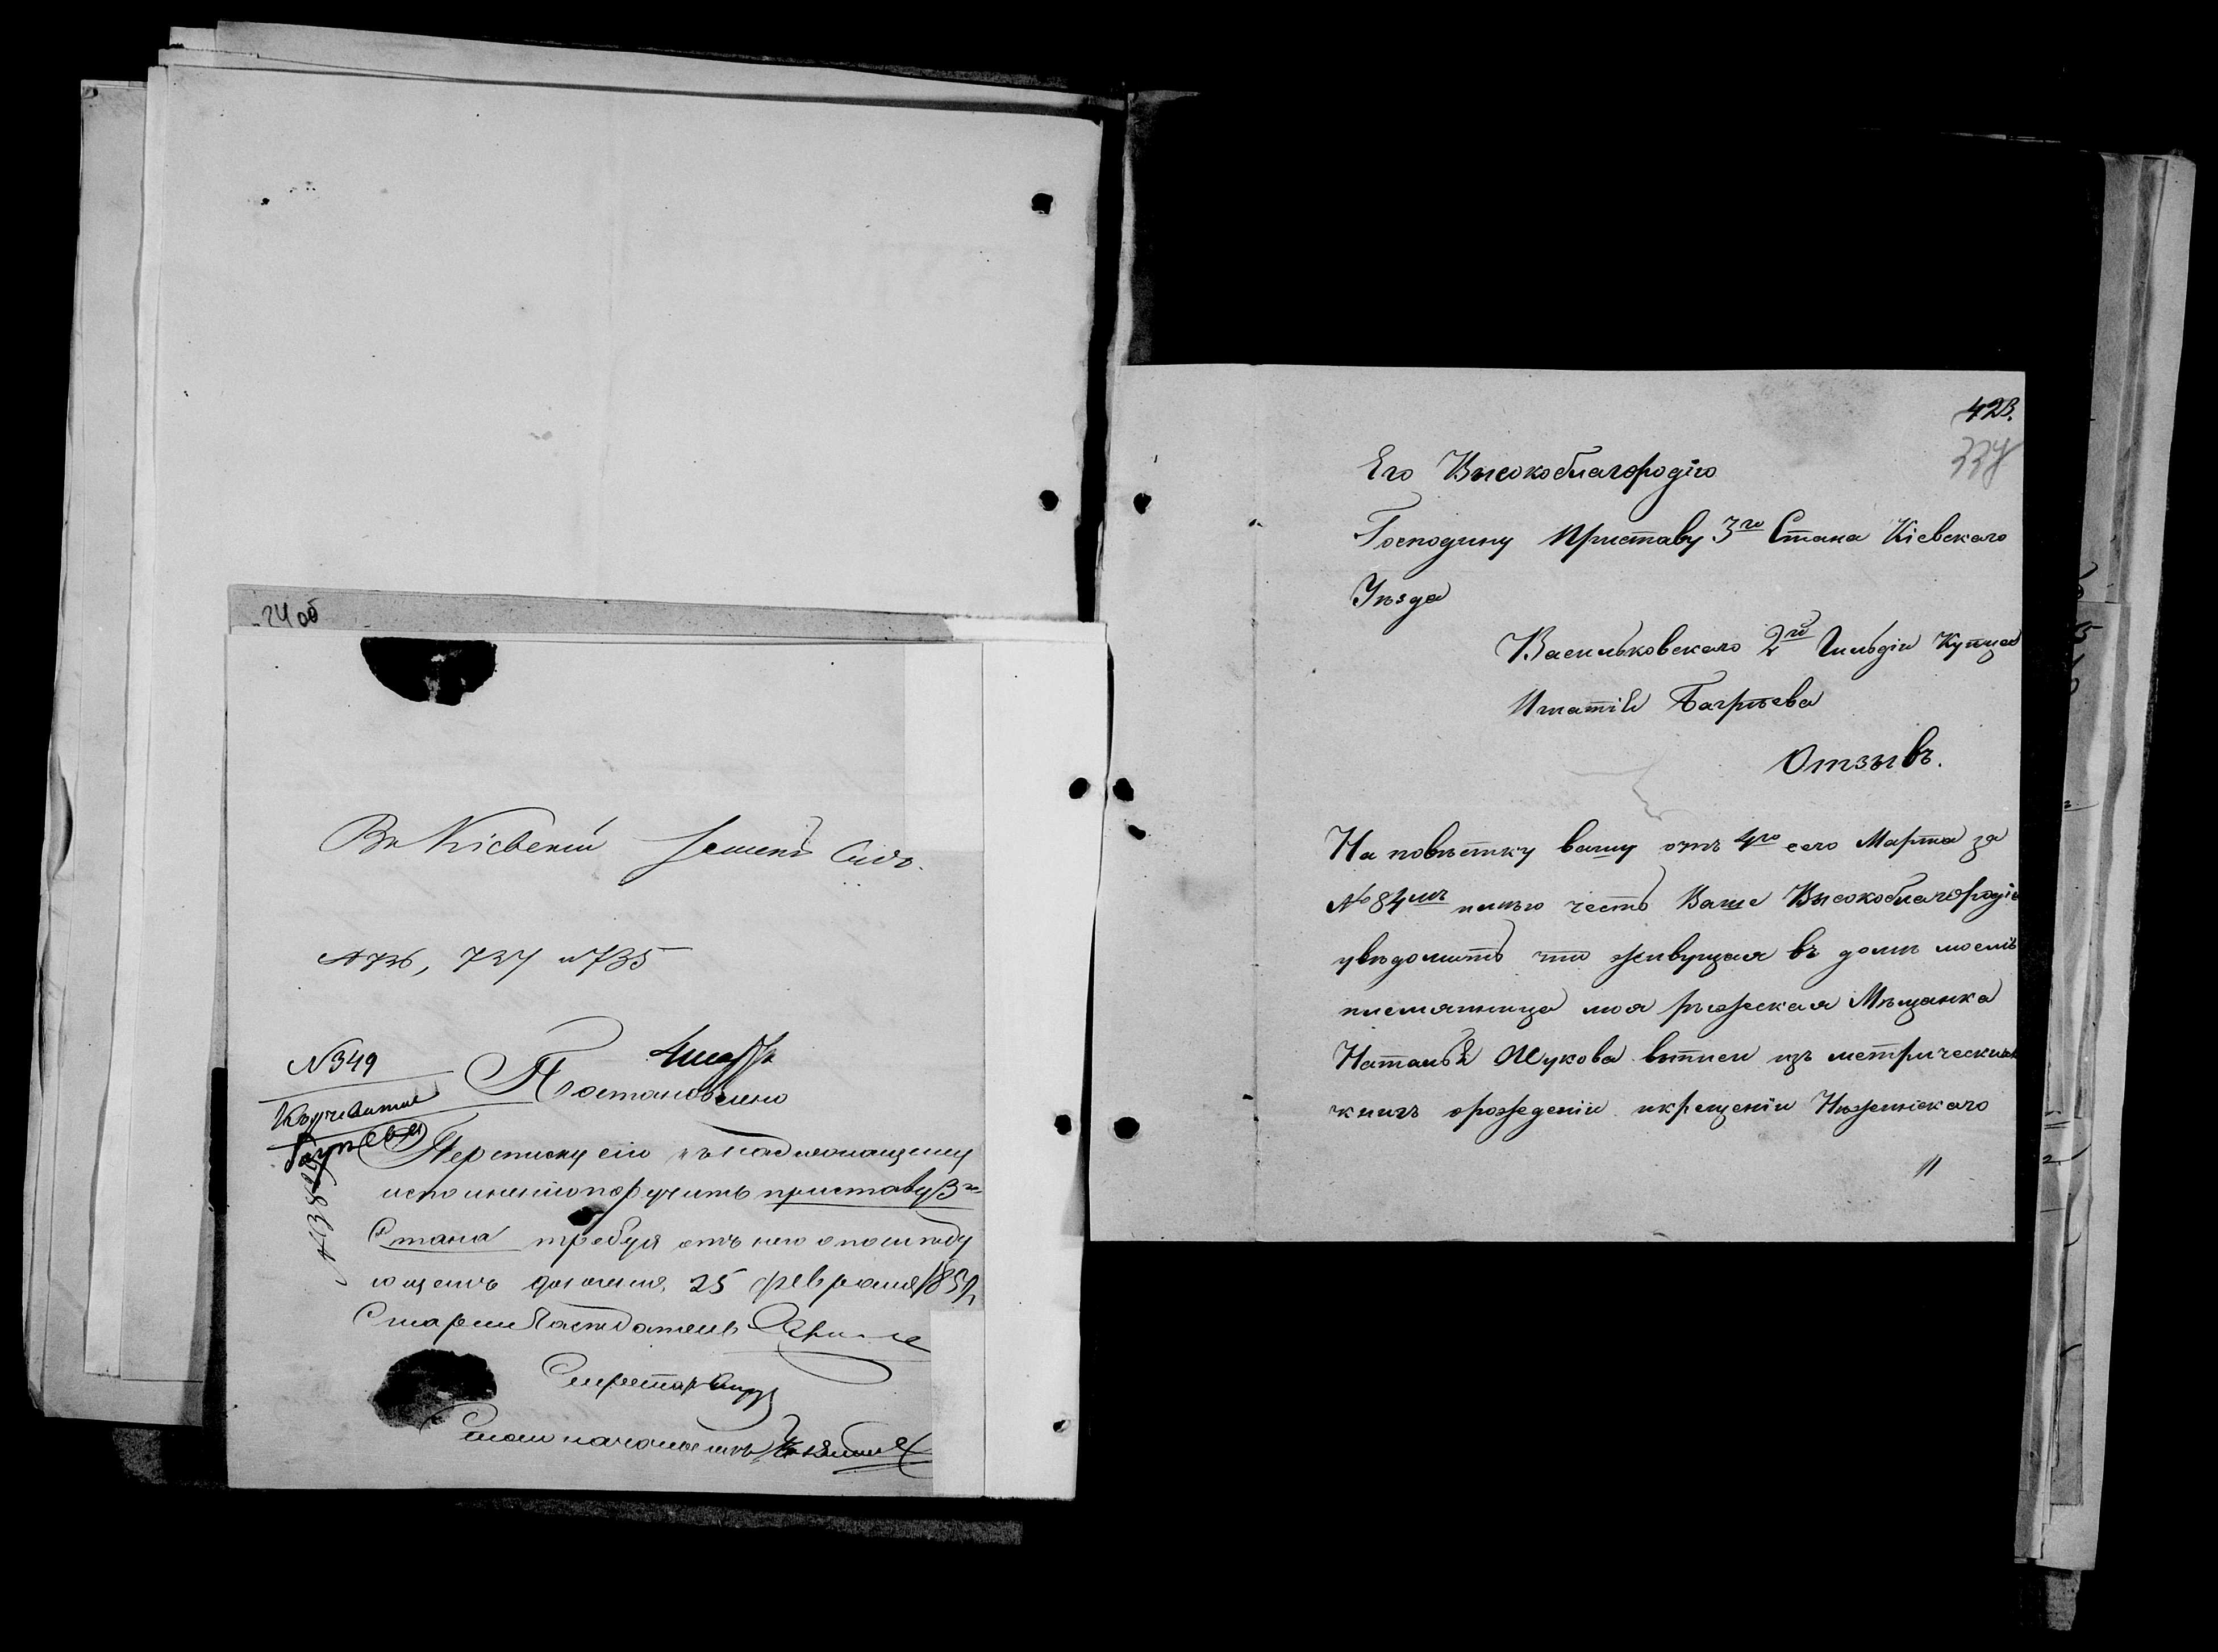 24 об
Въ Кіевскій Земскій Судъ.
727 и 735
N 349
Постановлено
Переписку сію къ надлежащему
исполненію поручить приставу 3го
Стана требуя отъ него о послѣду
ющемъ донесенія, 25 февраля 185
Старшій Засѣдатель
Секретарь
Столоначальникъ
423.
337
Его Высокоблагородію
Господину Приставу 3го Стана Кіевскаго
Уѣзда
Васильковскаго 2й Гильдіи Купца
Игнатія Багрѣева
Отзывъ.
На повѣстку вашу отъ 4го сего Марта за
№ 84мъ имѣю честь Ваше Высокоблагородіе
увѣдомить что живущая въ домѣ моемъ
племянница моя ржевская Мѣщанка
Наталья Жукова выписи изъ метрическихъ
книгъ орожденіи икрещеніи Нѣжинскаго